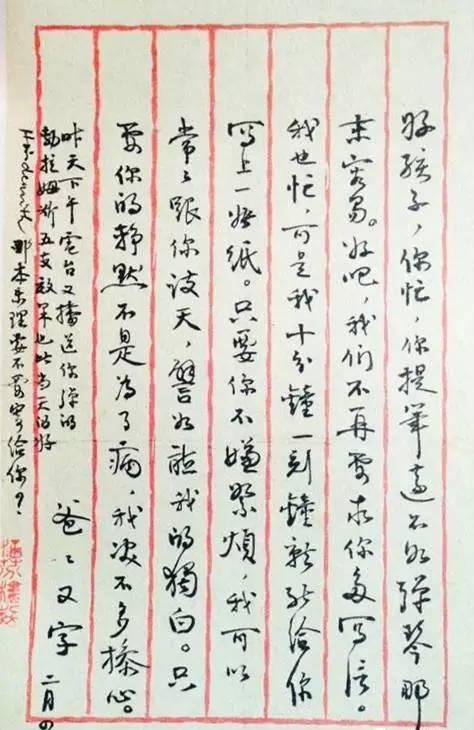 好孩子，你忙，你提笔遠不如弹琴那
末容易。好吧，我们不再要求你多写信。
我也忙，可是我十分鐘一刻鐘就能给你
写上一张纸。只要你不嫌繁煩，我可以
常々跟你谈天，譬如聽我的獨白。只
要你的静默不是为了病，我决不多操心。
爸々又字 二月
昨天下午電台又播送你弹的
勃拉姆斯五支效果也比当天的好
那本乐理要不要寄给你？